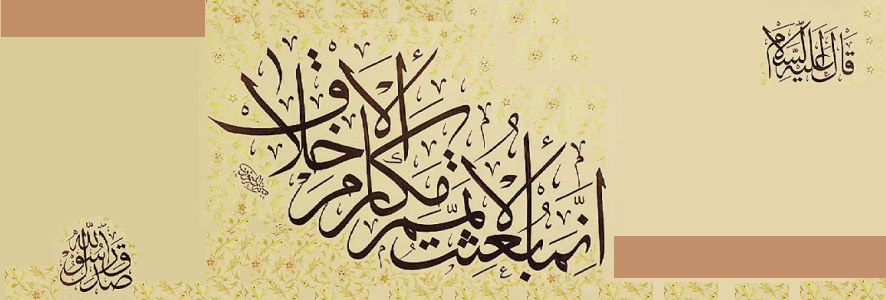 قال عليه السلام
إنما بعثت لأتمم مكارم الأخلاق
صدق رسول الله